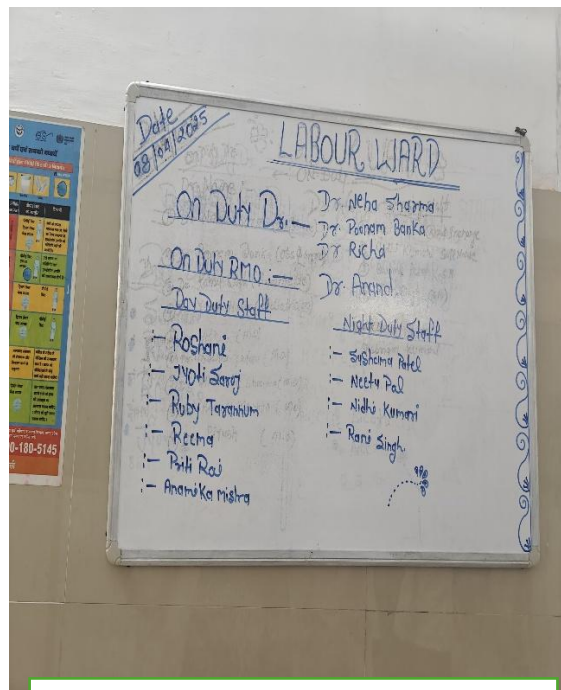 Date
08/09/2025
LABOUR WARD
On Duty Dr. :— Dr. Neha Sharma
Dr. Poonam Banka
Dr Richa
On Duty RMO :— Dr. Anand
Day Duty Staff
:— Roshani
:— Jyoti Saroj
:— Ruby Tarannum
:— Reema
:— Priti Rai
:— Anamika Mishra
Night Duty Staff
:— Sushama Patel
:— Neetu Pal
:— Nidhi Kumari
:— Rani Singh
0-180-5145